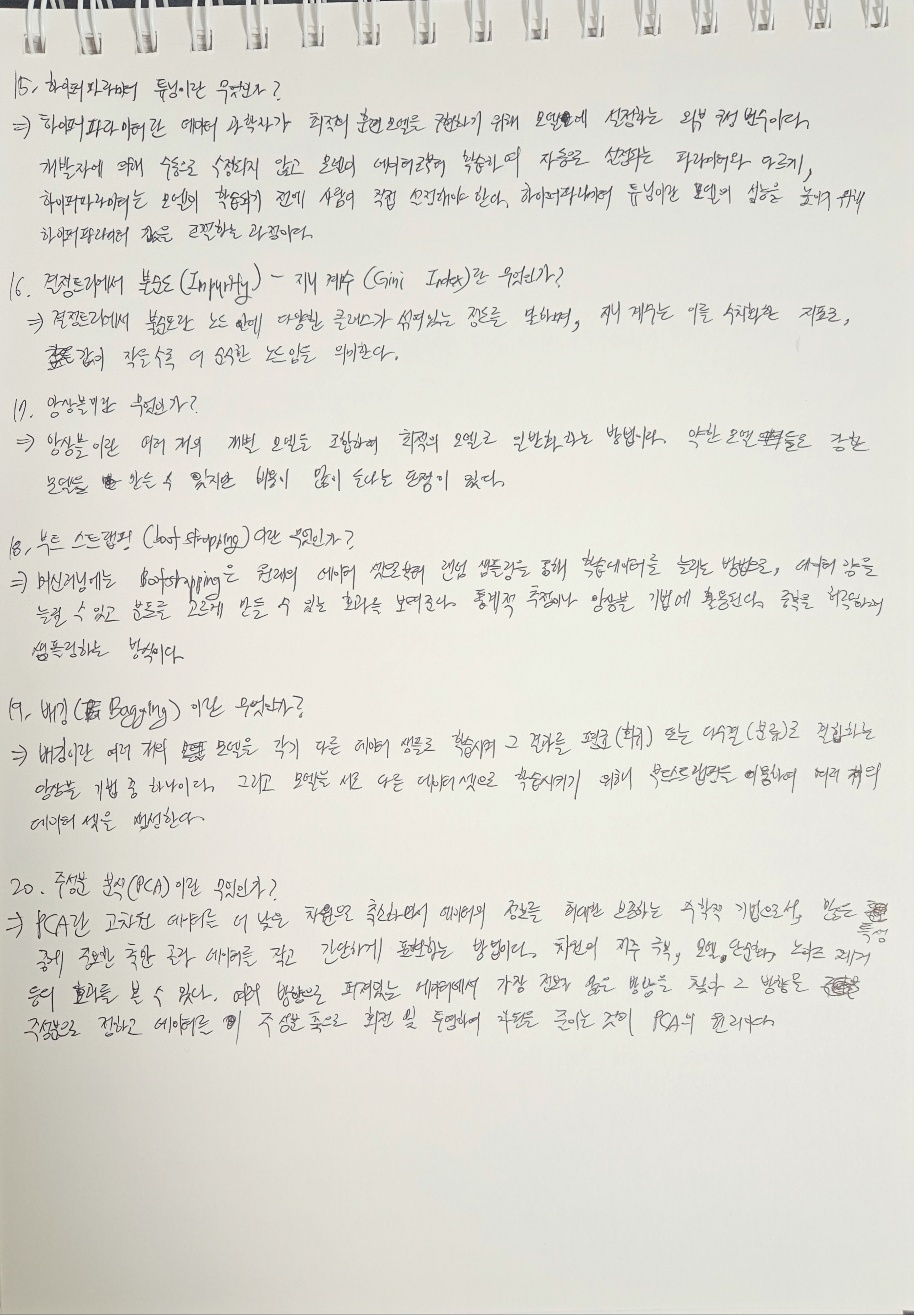 15. 하이퍼파라미터 튜닝이란 무엇인가?
⇒ 하이퍼파라미터란 데이터 과학자가 최적의 훈련 모델을 구현하기 위해 모델에 설정하는 외부 구성 변수이다.
개발자에 의해 수동으로 수정되지 않고 모델이 데이터로부터 학습하며 자동으로 선정되는 파라미터와 다르게,
하이퍼파라미터는 모델이 학습되기 전에 사람이 직접 설정해야 한다. 하이퍼파라미터 튜닝이란 모델의 성능을 높이기 위해
하이퍼파라미터 값을 조절하는 과정이다.
16. 결정트리에서 불순도(Impurity) - 지니 계수 (Gini Index)란 무엇인가?
⇒ 결정트리에서 불순도란 노드 안에 다양한 클래스가 섞여있는 정도를 말하며, 지니 계수는 이를 수치화한 지표로,
값이 작을수록 더 순수한 노드임을 의미한다.
17. 앙상블이란 무엇인가?
⇒ 앙상블이란 여러 개의 개별 모델을 조합하여 최적의 모델로 일반화하는 방법이다. 약한 모델들로 강한
모델을 만들 수 있지만 비용이 많이 든다는 단점이 있다.
18. 부트 스트랩핑 (bootstrapping)이란 무엇인가?
⇒ 머신러닝에는 Bootstrapping은 원래의 데이터 셋으로부터 랜덤 샘플링을 통해 학습데이터를 늘리는 방법으로, 데이터 양을
늘릴 수 있고 분포를 고르게 만들 수 있는 효과를 보여준다. 통계적 추정이나 앙상블 기법에 활용된다. 중복을 허락하여
샘플링하는 방식이다.
19. 배깅(Bagging)이란 무엇인가?
⇒ 배깅이란 여러 개의 모델을 각기 다른 데이터 샘플로 학습시켜 그 결과를 평균(회귀) 또는 다수결(분류)로 결합하는
앙상블 기법 중 하나이다. 그리고 모델을 서로 다른 데이터셋으로 학습시키기 위해 부트스트랩핑을 이용하여 여러 개의
데이터 셋을 생성한다.
20. 주성분 분석(PCA)이란 무엇인가?
⇒ PCA란 고차원 데이터를 더 낮은 차원으로 축소하면서 데이터의 정보를 최대한 보존하는 수학적 기법으로서, 많은 특성
중에 중요한 축만 골라 데이터를 작고 간단하게 표현하는 방법이다. 차원의 저주 극복, 모델 단순화, 노이즈 제거
등의 효과를 볼 수 있다. 여러 방향으로 퍼져있는 데이터에서 가장 정보가 많은 방향을 찾아 그 방향을
주성분으로 정하고 데이터를 이 주성분 축으로 회전 및 투영하여 차원을 줄이는 것이 PCA의 원리이다.